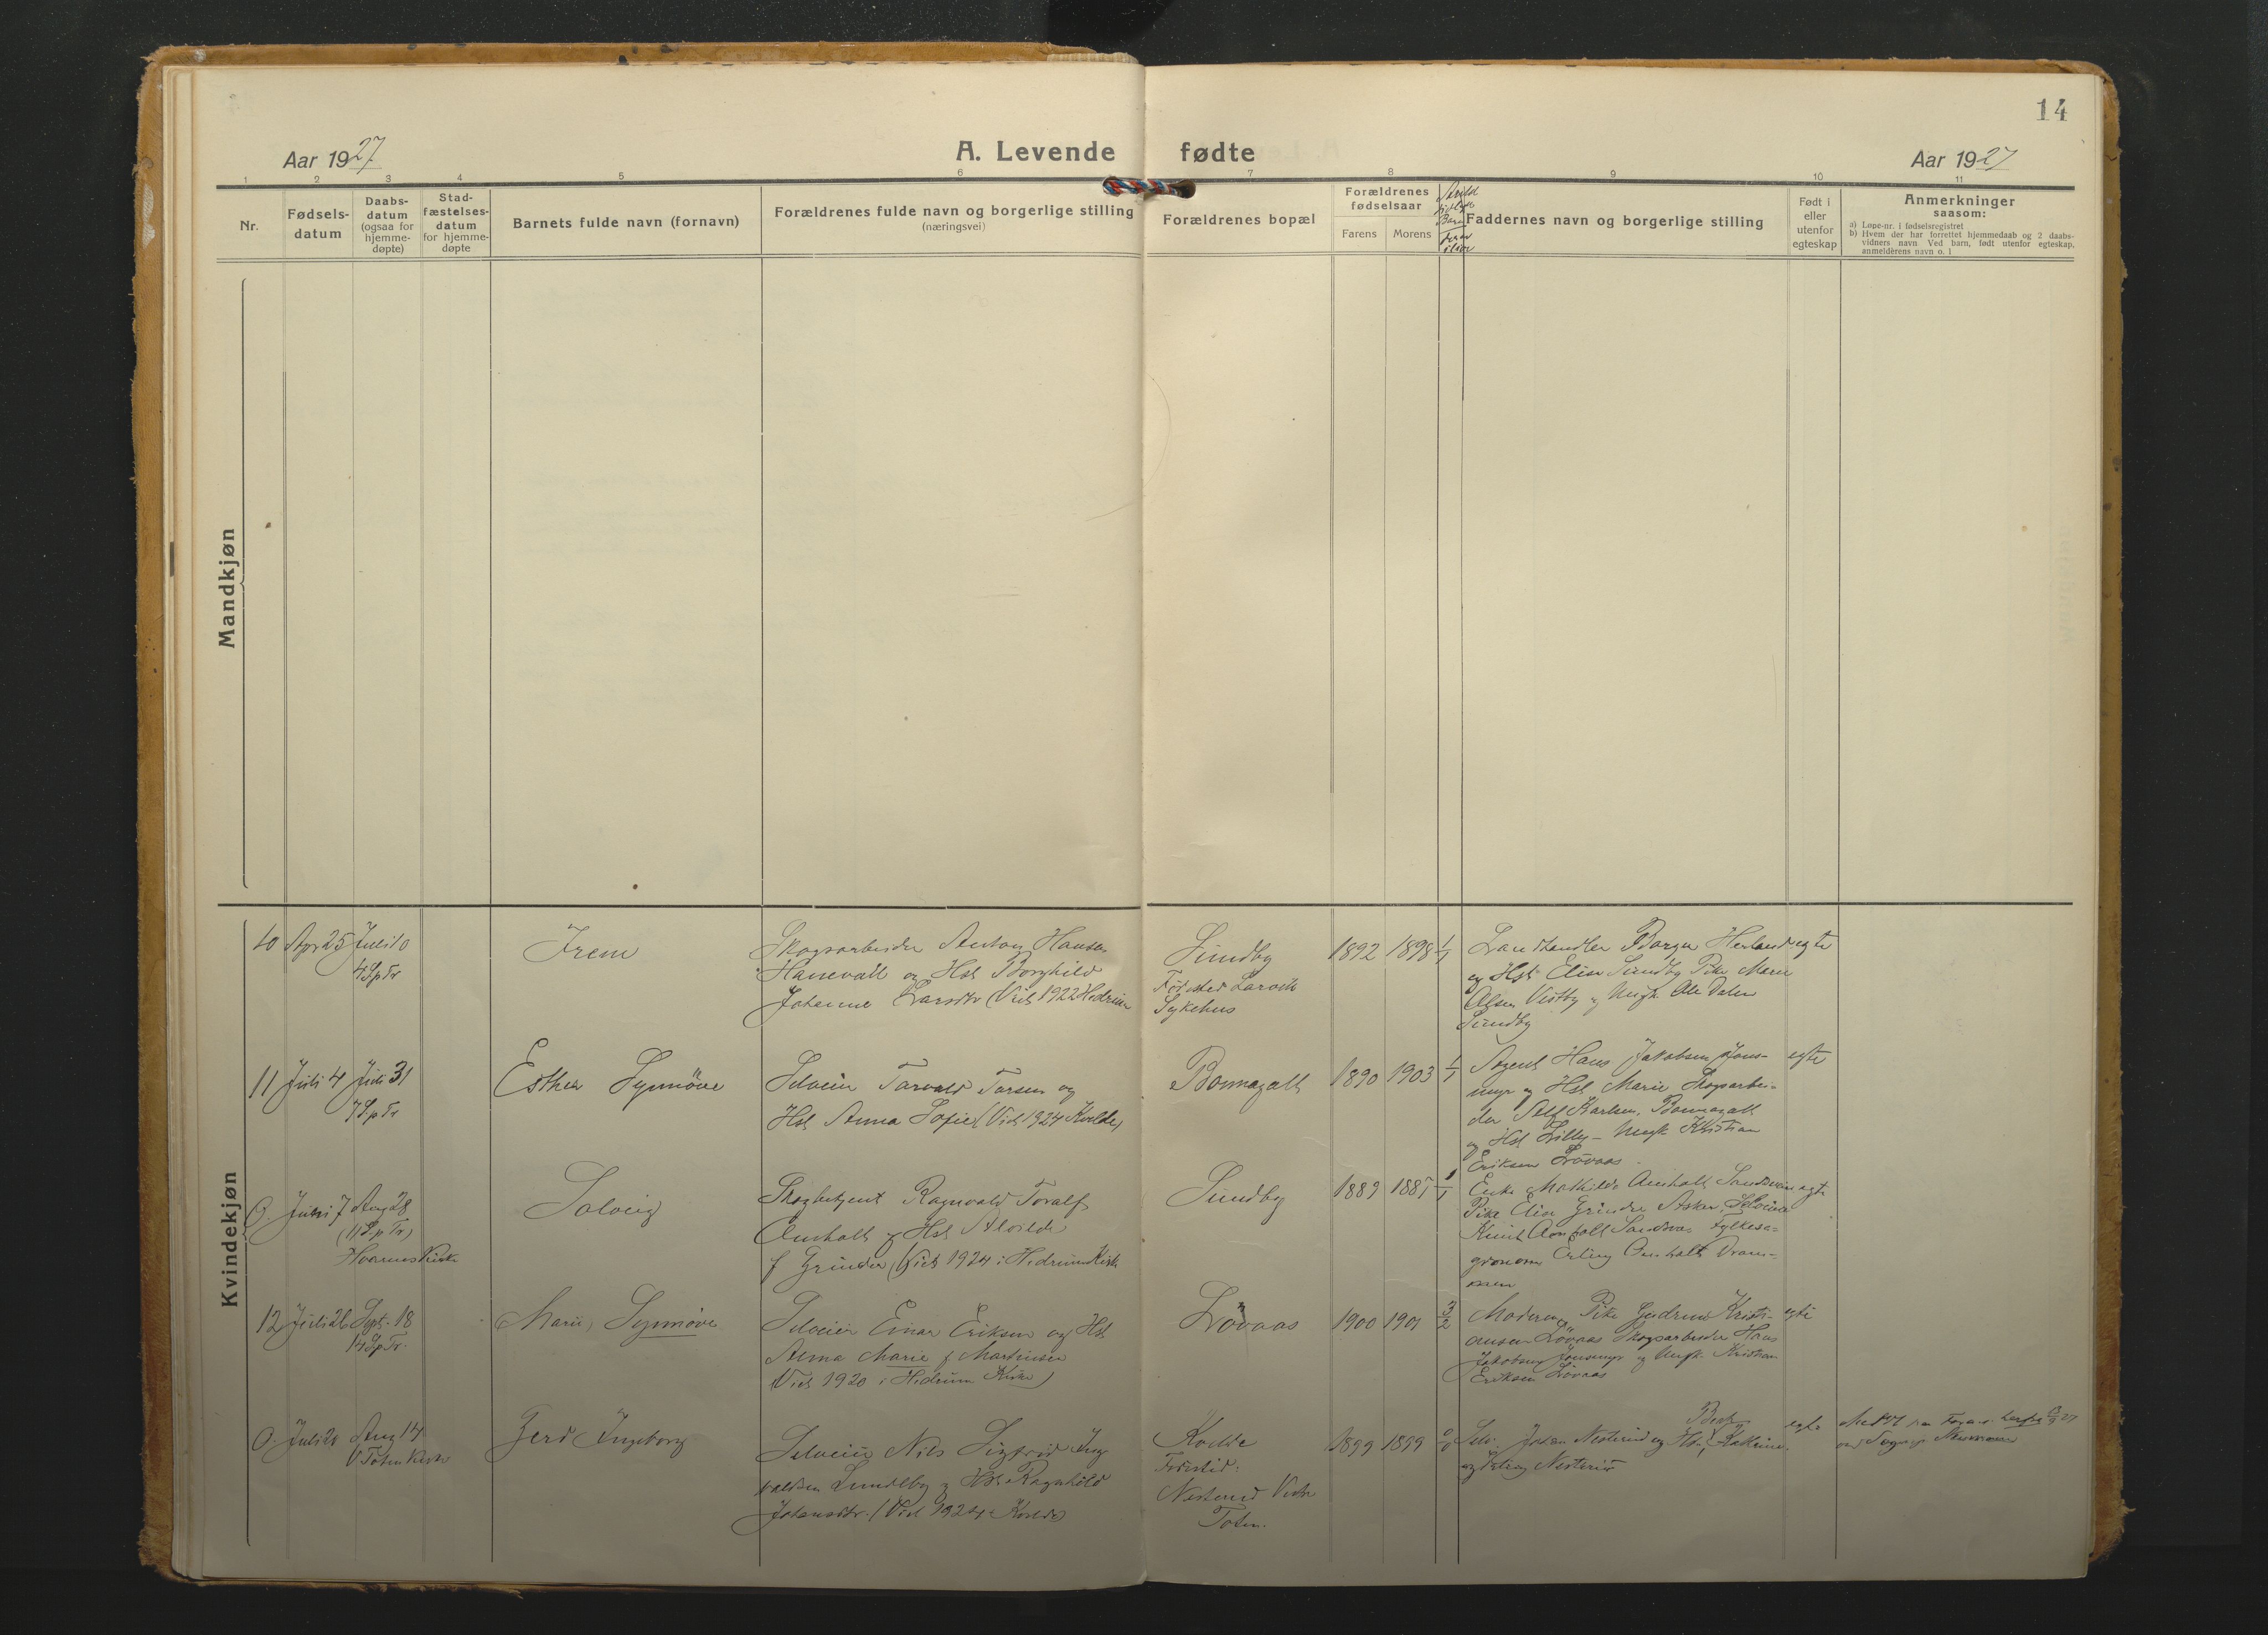 14
Aar 1927
A. Levende fødte
Aar 1927
1 2 3 4 5 6 7 8 9 10 11
Nr.
Fødsels-
datum
Daabs-
datum
(ogsaa for
hjemme-
døpte)
Stad-
fæstelses-
datum
for hjemme-
døpte
Barnets fulde navn (fornavn)
Forældrenes fulde navn og borgerlige stilling
(næringsvei)
Forældrenes bopæl
Forældrenes
fødselsaar
Farens
Morens
Faddernes navn og borgerlige stilling
Født i
eller
utenfor
egteskap
Anmerkninger
saasom:
a) Løpe-nr. i fødselsregistret
b) Hvem der har forrettet hjemmedaab og 2 daabs-
vidners navn Ved barn, født utenfor egteskap,
anmelderens navn o. l
Mandkjøn
Kvindekjøn
10 Apr 25 Juli 10
4 S p Tr
Irene
Skogsarbeider Anton Hansen
Hanevall og Hst Borghild
Johanne Larsdtr (Viet 1922 Hedrum
Sundby
Fødested Larvik
Sykehus
1892 1898 1/1
Landhandler Borger Herland
og Hst Elise Sundby Pike Marie
Olsen Vestby og Ungk Ole Dalen
Sundby
egte
11 Juli 4 Juli 31
7 S p Tr
Esther Synnöve
Selveier Torvald Torsen og
Hst Anna Sofie (Viet 1924 Kvelde)
Bonnagolt
1890 1903 1/1
Agent Hans Jakobsen Jons-
myr og Hst Marie Skogsarbei-
der Alf Karlsen, Bonnagolt
og Hst Lilly – Ungk. Kristian
Eriksen Lövaas
egte
0. Juni 7 Aug 28
(11 S p Tr)
Hvarnes Kirke
Solveig
Skogbetjent Ragnvald Toralf
Omholt og Hst Alvilde
f Grinder (Viet 1924 i Hedrum Kirke
Sundby
1889 1885 1/1
Enke Mathilde Omholt Sandsvær
Pike Elise Grindre Asker, Selveier
Knut Omholt Sandsvær Fylkesa-
gronom Erling Omholt Dram-
men
egte
12 Juli 26 Sept. 18
14 S p Tr.
Marie, Synnöve
Selveier Einar Eriksen og Hst
Anna Marie f. Martinsen
(Viet 1920 i Hedrum Kirke)
Lövaas
1900 1901 3/2
Moderen, Pike Gudrun Kristi-
ansen Lövaas Skogsarbeider Hans
Jakobsen Jonsmyr og Ungk. Kristian
Eriksen Lövaas
egte
0. Juli 20 Aug 14
V. Toten Kirke
Gerd Ingeborg
Selveier Nils Sigfred Ing
valdsen Lundby og Hst Ragnhild
Johansdtr. (Viet 1924 i Kvelde)
Kvelde
Fødested:
Nesterud Vestre
Toten.
1899 1899 0/0
Selv. Johan Nesterud og Hst. Katrine
og Petra Nesterud
egte